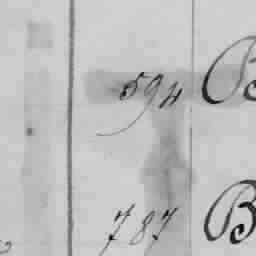 594 B
787 B